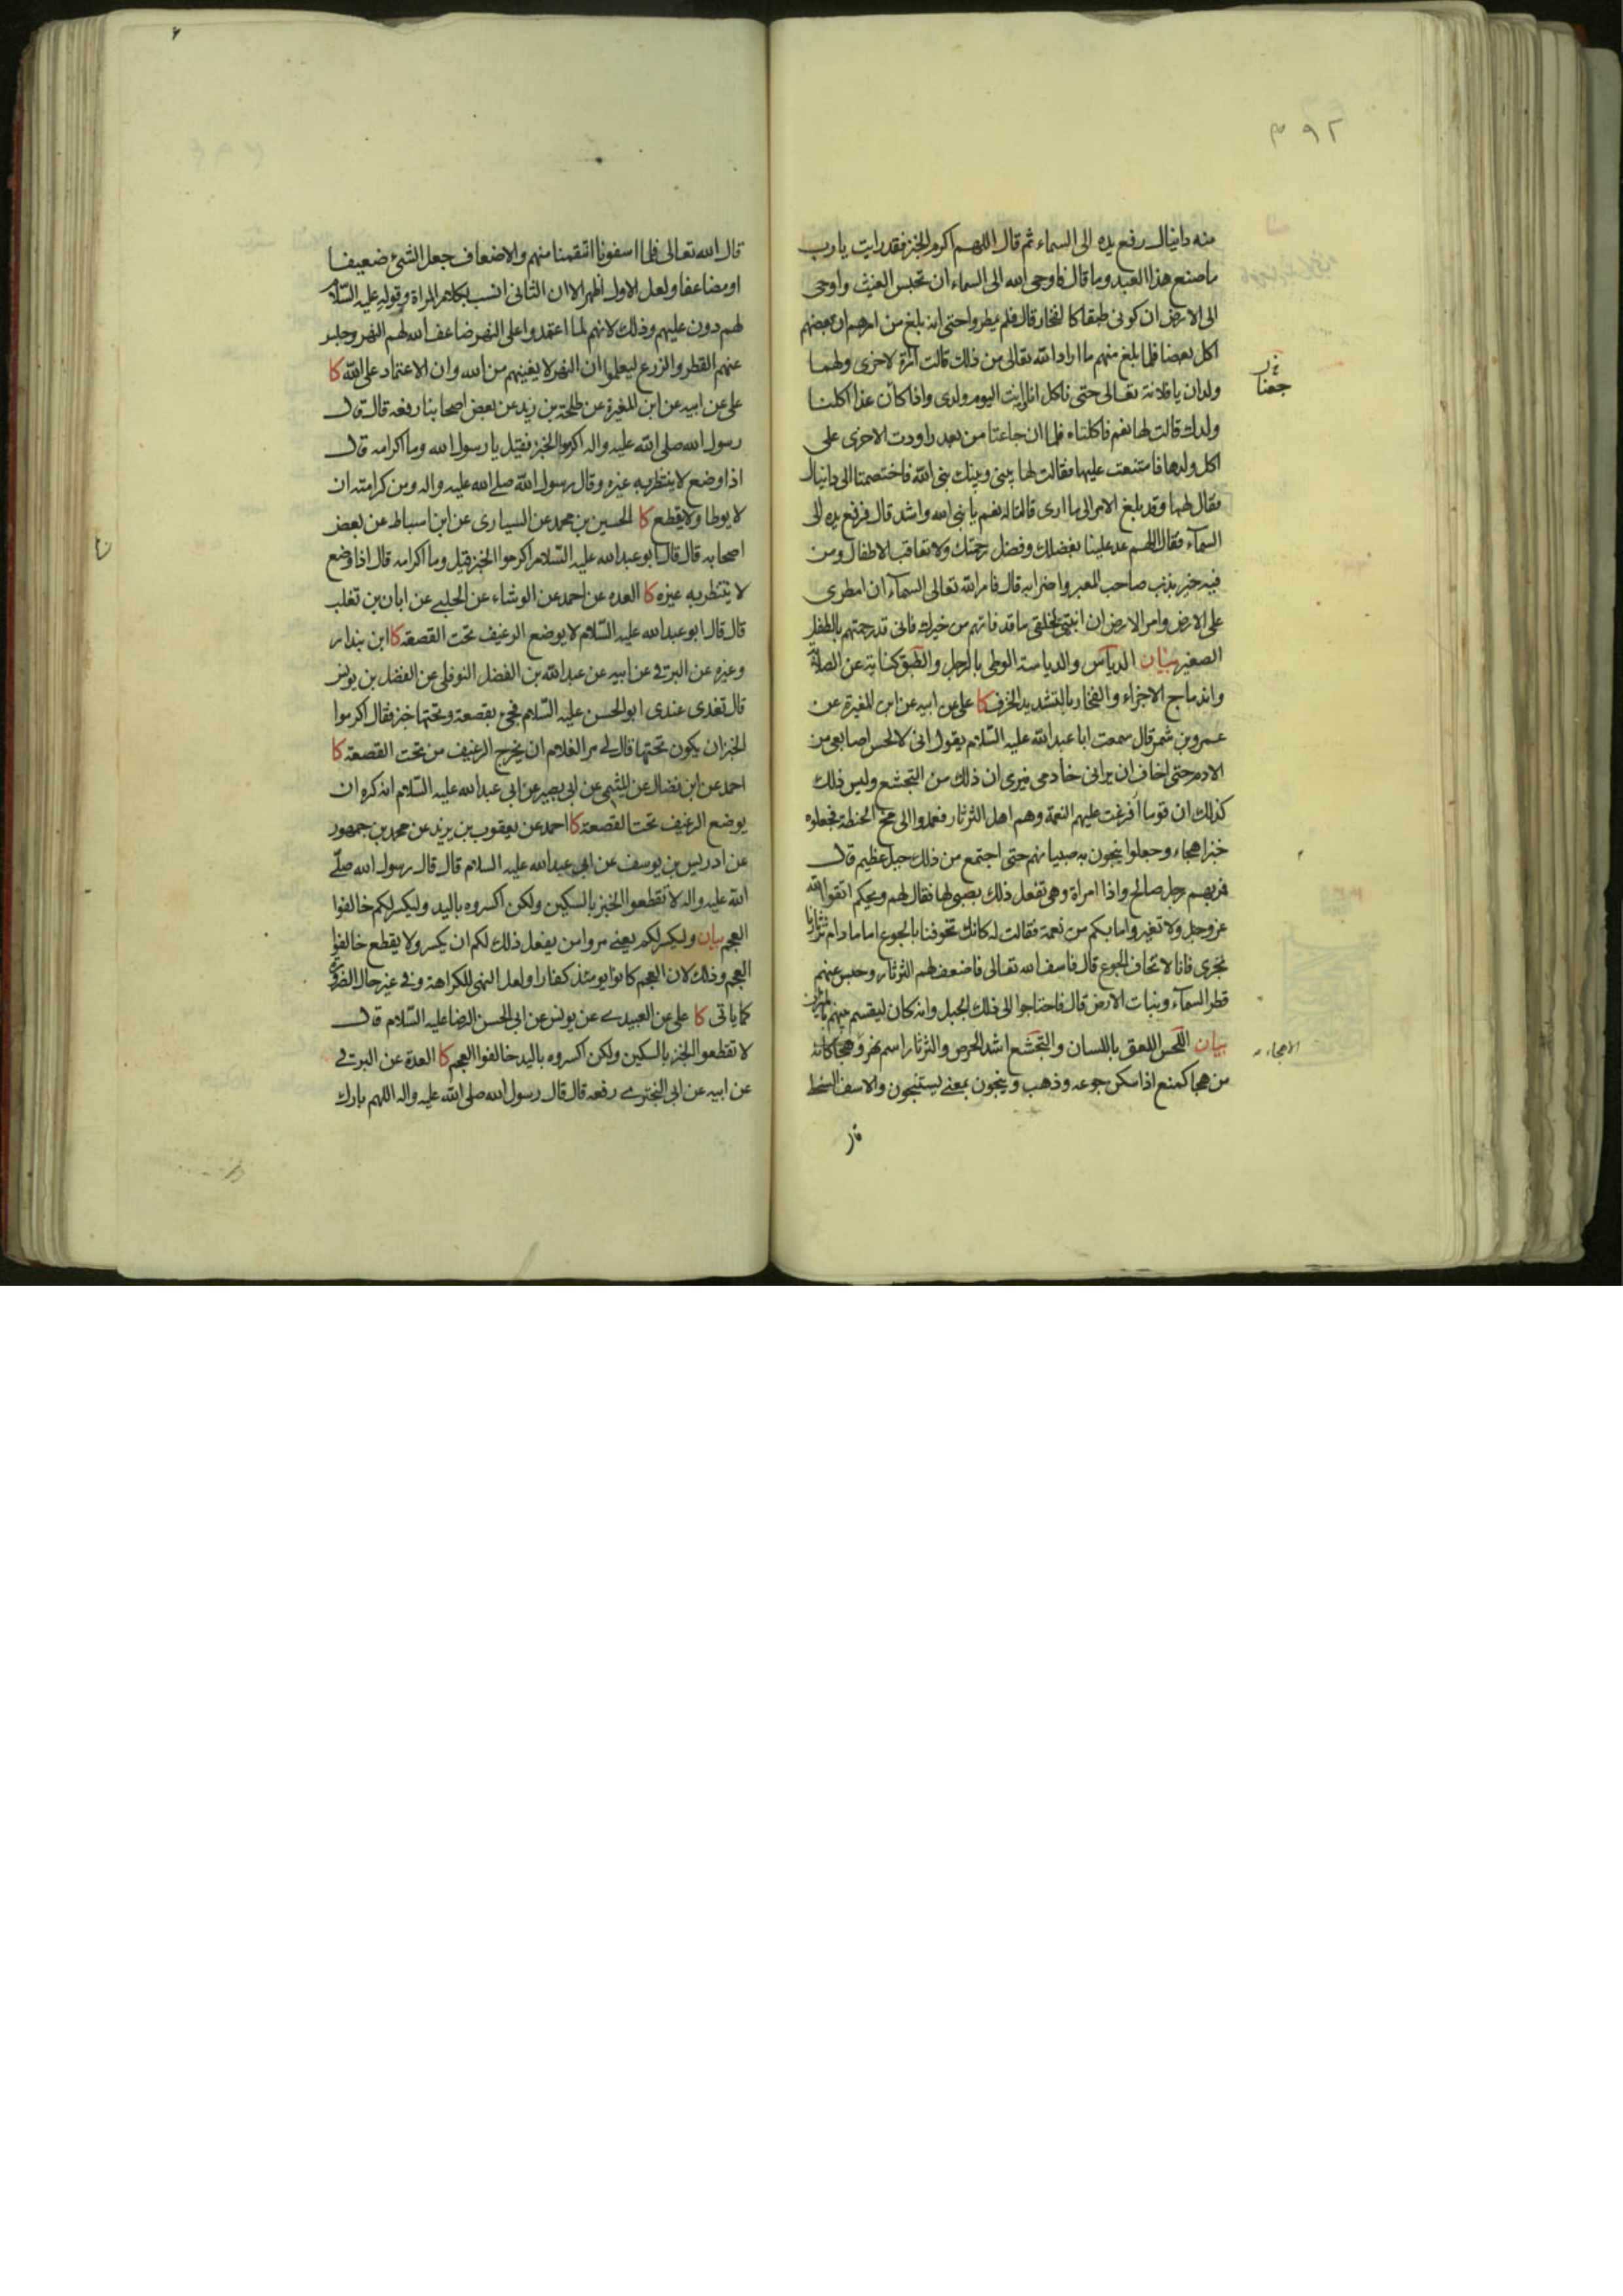 ۳۹۲
منه دانيال رفع يده الى السماء ثم قال اللهم اكرم الخبز فقد رايت يا رب
ما صنع هذا العبد وما قال فاوحى الله الى السماء ان تحبس الغيث واوحى
الى الارض ان كونى طبقا كالفخار قال فلم يمطروا حتى انه بلغ من امرهم ان بعضهم
اكل بعضا فلما بلغ منهم ما اراد الله تعالى من ذلك قالت امراة لاخرى ولهما
ولدان يا فلانة تعالى حتى ناكل انا وانت اليوم ولدى واذا كان غدا اكلنا
ولدك قالت لها نعم فاكلتاه فلما ان جاعتا من بعد راودت الاخرى على
اكل ولدها فامتنعت عليها فقالت لها بينى وبينك نبى الله فاختصمتا الى دانيال
فقال لهما وقد بلغ الامر الى ما ارى قالتا له نعم يا نبى الله واشد قال فرفع يده الى
السماء فقال اللهم عد علينا بفضلك وفضل رحمتك ولا تعاقب الاطفال ومن
فيه خير بذنب صاحب المعبر واضرابه قال فامر الله تعالى السماء ان امطرى
على الارض وامر الارض ان انبتى لخلقى ما قد فاتهم من خيرك فانى قد رحمتهم بالطفل
الصغير بيان الدياس والدياسة الوطى بالرجل والطبق كناية عن الصلابة
واندماج الاجزاء والفخار بالتشديد الخزف كا على عن ابيه عن ابن المغيرة عن
عمرو بن شمر قال سمعت ابا عبدالله عليه السلام يقول انى لالحس اصابعى من
الادم حتى اخاف ان يرانى خادمى فيرى ان ذلك من التجشع وليس ذلك
كذلك ان قوما افرغت عليهم النعمة وهم اهل الثرثار فعمدوا الى مخ الحنطة فجعلوه
خبزا هجاء وجعلوا ينجون به صبيانهم حتى اجتمع من ذلك جبل عظيم قال
فمر بهم رجل صالح واذا امراة وهى تفعل ذلك بصبى لها فقال لهم ويحكم اتقوا الله
عز وجل ولا تغيروا ما بكم من نعمة فقالت له كانك تخوفنا بالجوع اما ما دام ثرثارنا
تجرى فانا لا نخاف الجوع قال فاسف الله تعالى فاضعف لهم الثرثار وحبس عنهم
قطر السماء ونبات الارض قال فاحتاجوا الى ذلك الجبل وانه كان ليقسم بينهم بالميزان
بيان اللحس اللعق باللسان والتجشع اشد الحرص والثرثار اسم نهر وهجا كانه
من هجا كمنع اذا سكن جوعه وذهب وينجون بمعنى يستنجون والاسف السخط
قال
جعنا
الاهجاء
قال الله تعالى فلما اسفونا انتقمنا منهم والاضعاف جعل الشىء ضعيفا
او مضاعفا ولعل الاول اظهر الا ان الثانى انسب بكلام المراة وقوله عليه السلام
لهم دون عليهم وذلك لانهم لما اعتمدوا على النهر ضاعف الله لهم النهر وحبس
عنهم القطر والزرع ليعلموا ان النهر لا يغنيهم من الله وان الاعتماد على الله كا
على عن ابيه عن ابن المغيرة عن طلحة بن زيد عن بعض اصحابنا رفعه قال قال
رسول الله صلى الله عليه واله اكرموا الخبز فقيل يا رسول الله وما اكرامه قال
اذا وضع لا ينتظر به غيره وقال رسول الله صلى الله عليه واله ومن كرامته ان
لا يوطا ولا يقطع كا الحسين بن محمد عن السيارى عن ابن اسباط عن بعض
اصحابه قال قال ابو عبدالله عليه السلام اكرموا الخبز قيل وما اكرامه قال اذا وضع
لا ينتظر به غيره كا العدة عن احمد عن الوشاء عن الحلبى عن ابان بن تغلب
قال قال ابو عبدالله عليه السلام لا يوضع الرغيف تحت القصعة كا ابن بندار
وغيره عن البرقى عن ابيه عن عبدالله بن الفضل النوفلى عن الفضل بن يونس
قال تغدى عندى ابو الحسن عليه السلام فجىء بقصعة وتحتها خبز فقال اكرموا
الخبز ان يكون تحتها قال لى مر الغلام ان يخرج الرغيف من تحت القصعة كا
احمد عن ابن فضال عن الميثمى عن ابى بصير عن ابى عبدالله عليه السلام انه كره ان
يوضع الرغيف تحت القصعة كا احمد عن يعقوب بن يزيد عن محمد بن جمهور
عن ادريس بن يوسف عن ابى عبدالله عليه السلام قال قال رسول الله صلى
الله عليه واله لا تقطعوا الخبز بالسكين ولكن اكسروه باليد وليكسر لكم خالفوا
العجم بيان وليكسر لكم يعنى مروا من يفعل ذلك لكم ان يكسر ولا يقطع خالفوا
العجم وذلك لان العجم كانوا يومئذ كفارا ولعل النهى للكراهة وفى غير حال الضرورة
كما ياتى كا على عن العبيدى عن يونس عن ابى الحسن الرضا عليه السلام قال
لا تقطعوا الخبز بالسكين ولكن اكسروه باليد خالفوا العجم كا العدة عن البرقى
عن ابيه عن ابى البخترى رفعه قال قال رسول الله صلى الله عليه واله اللهم بارك